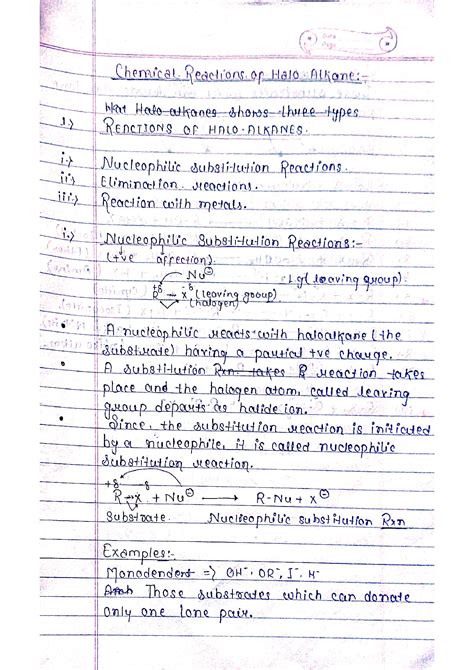 Date
Page
Chemical Reactions of Halo-Alkane:-
Halo-alkanes shows three types
1.) REACTIONS OF HALO-ALKANES.
i.) Nucleophilic substitution Reactions.
ii.) Elimination reactions.
iii.) Reaction with metals.
i.) Nucleophilic Substitution Reactions:-
(+ve affection).
Nu⊖ Lg(leaving group)
+δ -δ
R → X (leaving group)
(halogen)
• A nucleophilic reacts with haloalkane (the
substrate) having a partial +ve charge.
• A substitution Rxn takes & reaction takes
place and the halogen atom, called leaving
group departs as halide ion.
• Since, the substitution reaction is initiated
by a nucleophile, it is called nucleophilic
substitution reaction.
+δ -δ
R-X + Nu⊖ → R-Nu + X⊖
Substrate. Nuclieophilic substitution Rxn
Examples:-
Monodendent => OH⁻, OR⁻, I⁻, H⁻
Those substrates which can donate
only one lone pair.